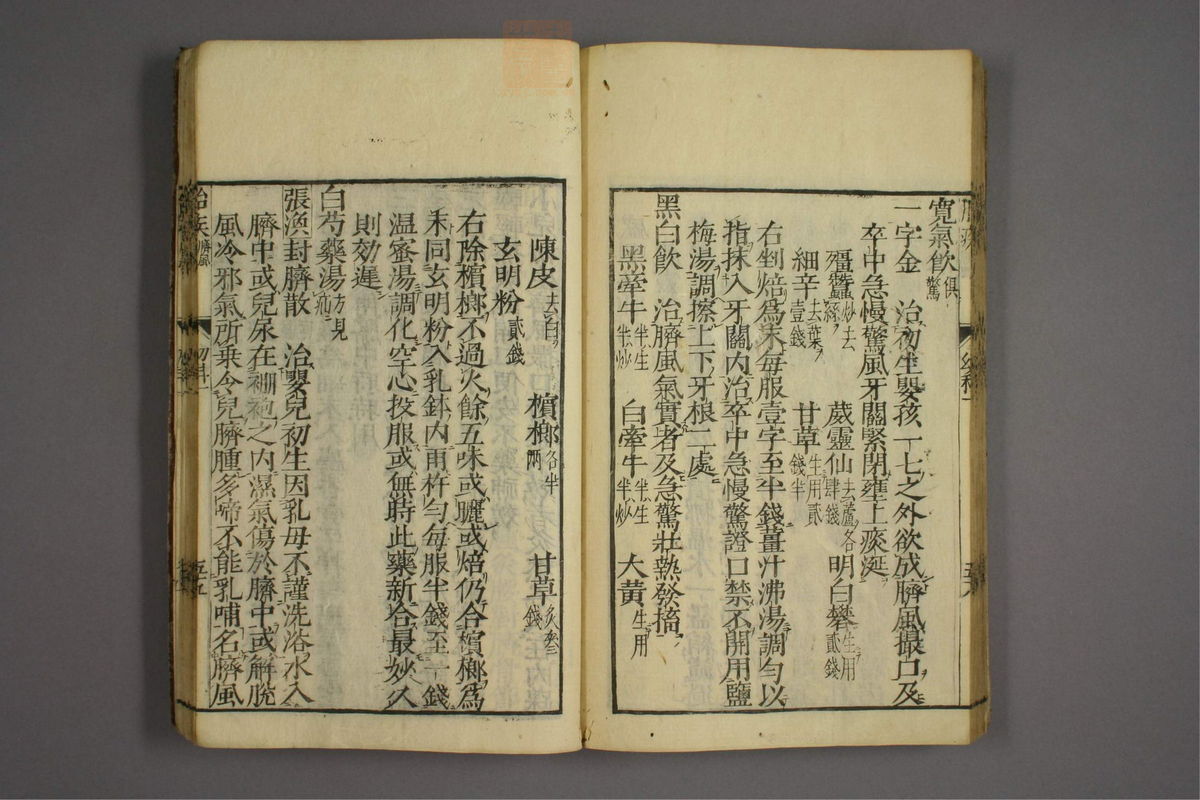 寬氣飲俱驚
一字金　治初生嬰孩一七之外欲成臍風撮口及
卒中急慢驚風牙關緊閉壅上痰涎
殭蠶炒去絲　葳靈仙去蘆各肆錢　明白礬生用貳錢
細辛去葉壹錢　甘草生用貳錢半
右剉焙爲末每服壹字至半錢薑汁沸湯調勻以
指抹入牙關內治卒中急慢驚證口禁不開用鹽
梅湯調擦上下牙根二處
黑白飲　治臍風氣實者及急驚壯熱發搐
黑牽牛半生半炒　白牽牛半生半炒　大黃生用
陳皮去白　檳榔各半兩　甘草炙叁錢
玄明粉貳錢
右除檳榔不過火餘五味或曬或焙仍合檳榔爲
末同玄明粉入乳鉢內再杵勻每服半錢至一錢
溫蜜湯調化空心投服或無時此藥新合最妙久
則効遲
白芍藥湯方見
張渙封臍散　治嬰兒初生因乳母不謹洗浴水入
臍中或兒尿在襁袍之內濕氣傷於臍中或解脫
風冷邪氣所乘令兒臍腫多啼不能乳哺名臍風